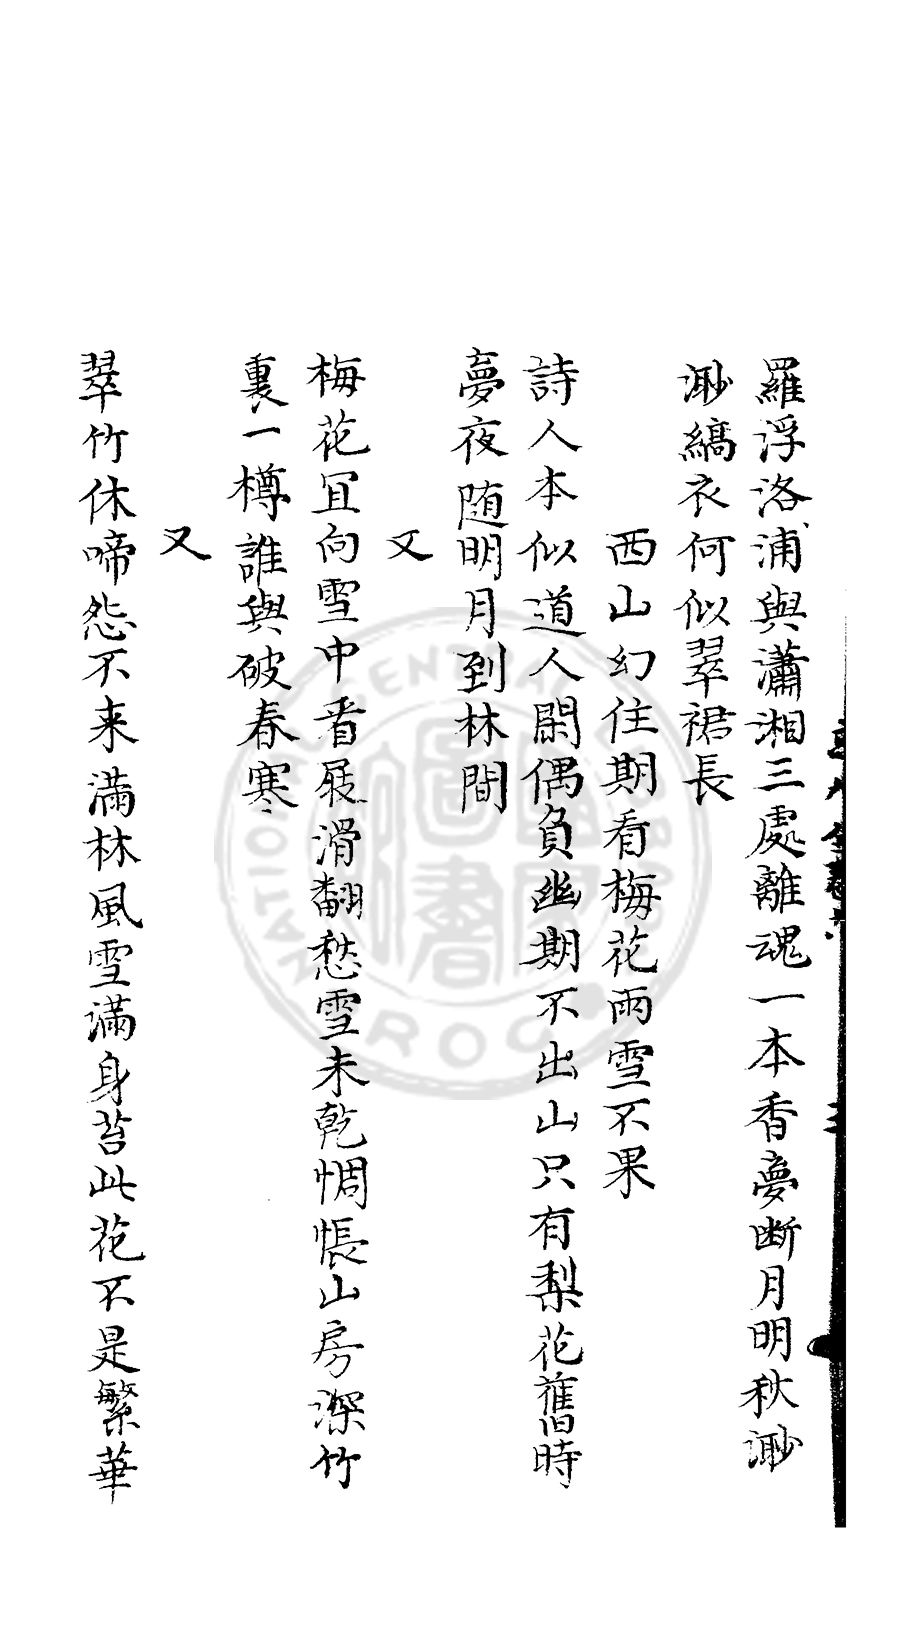 羅浮洛浦與瀟湘三處離魂一本香夢断月明秋渺
渺縞衣何似翠裙長
西山幻住期看梅花雨雪不果
詩人本似道人閑偶負幽期不出山只有梨花舊時
夢夜随明月到林間
又
梅花冝向雪中看屐滑翻愁雪未乾惆悵山房深竹
裏一樽誰與破春寒
又
翠竹休啼怨不来滿林風雪滿身苔此花不是繁華
NATIONAL CENTRAL LIBRARY
ROC
國家圖書